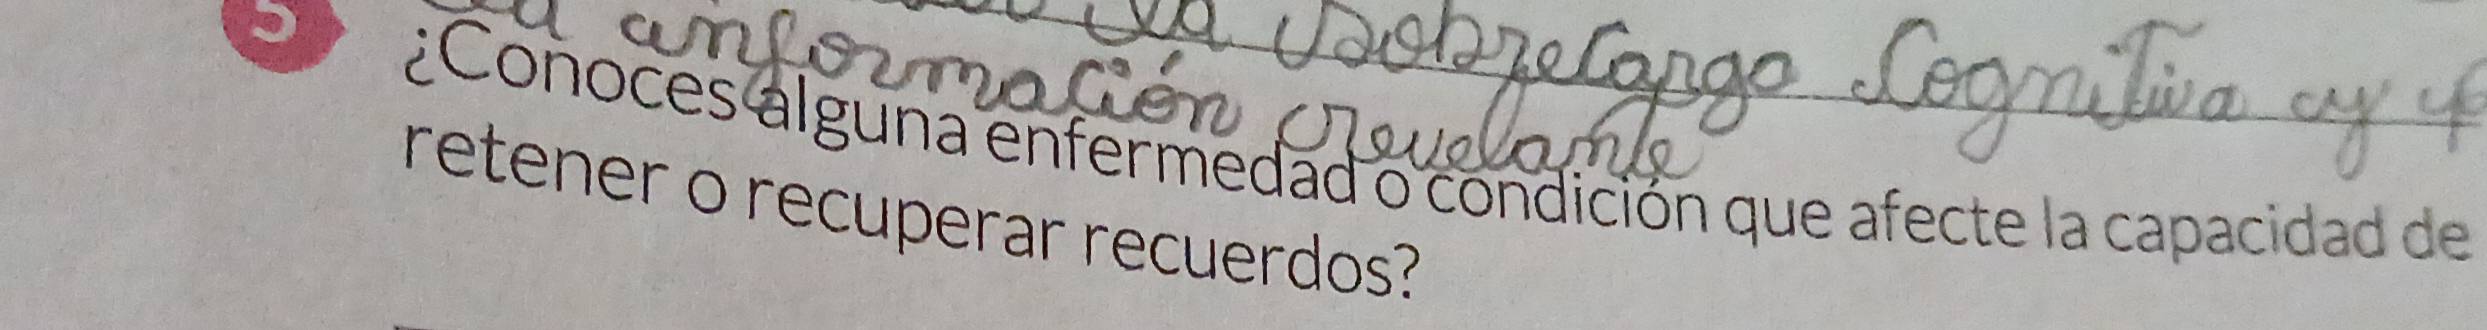 la sobrecargo Cognitiva y
la información relevante
5
¿Conoces alguna enfermedad o condición que afecte la capacidad de
retener o recuperar recuerdos?